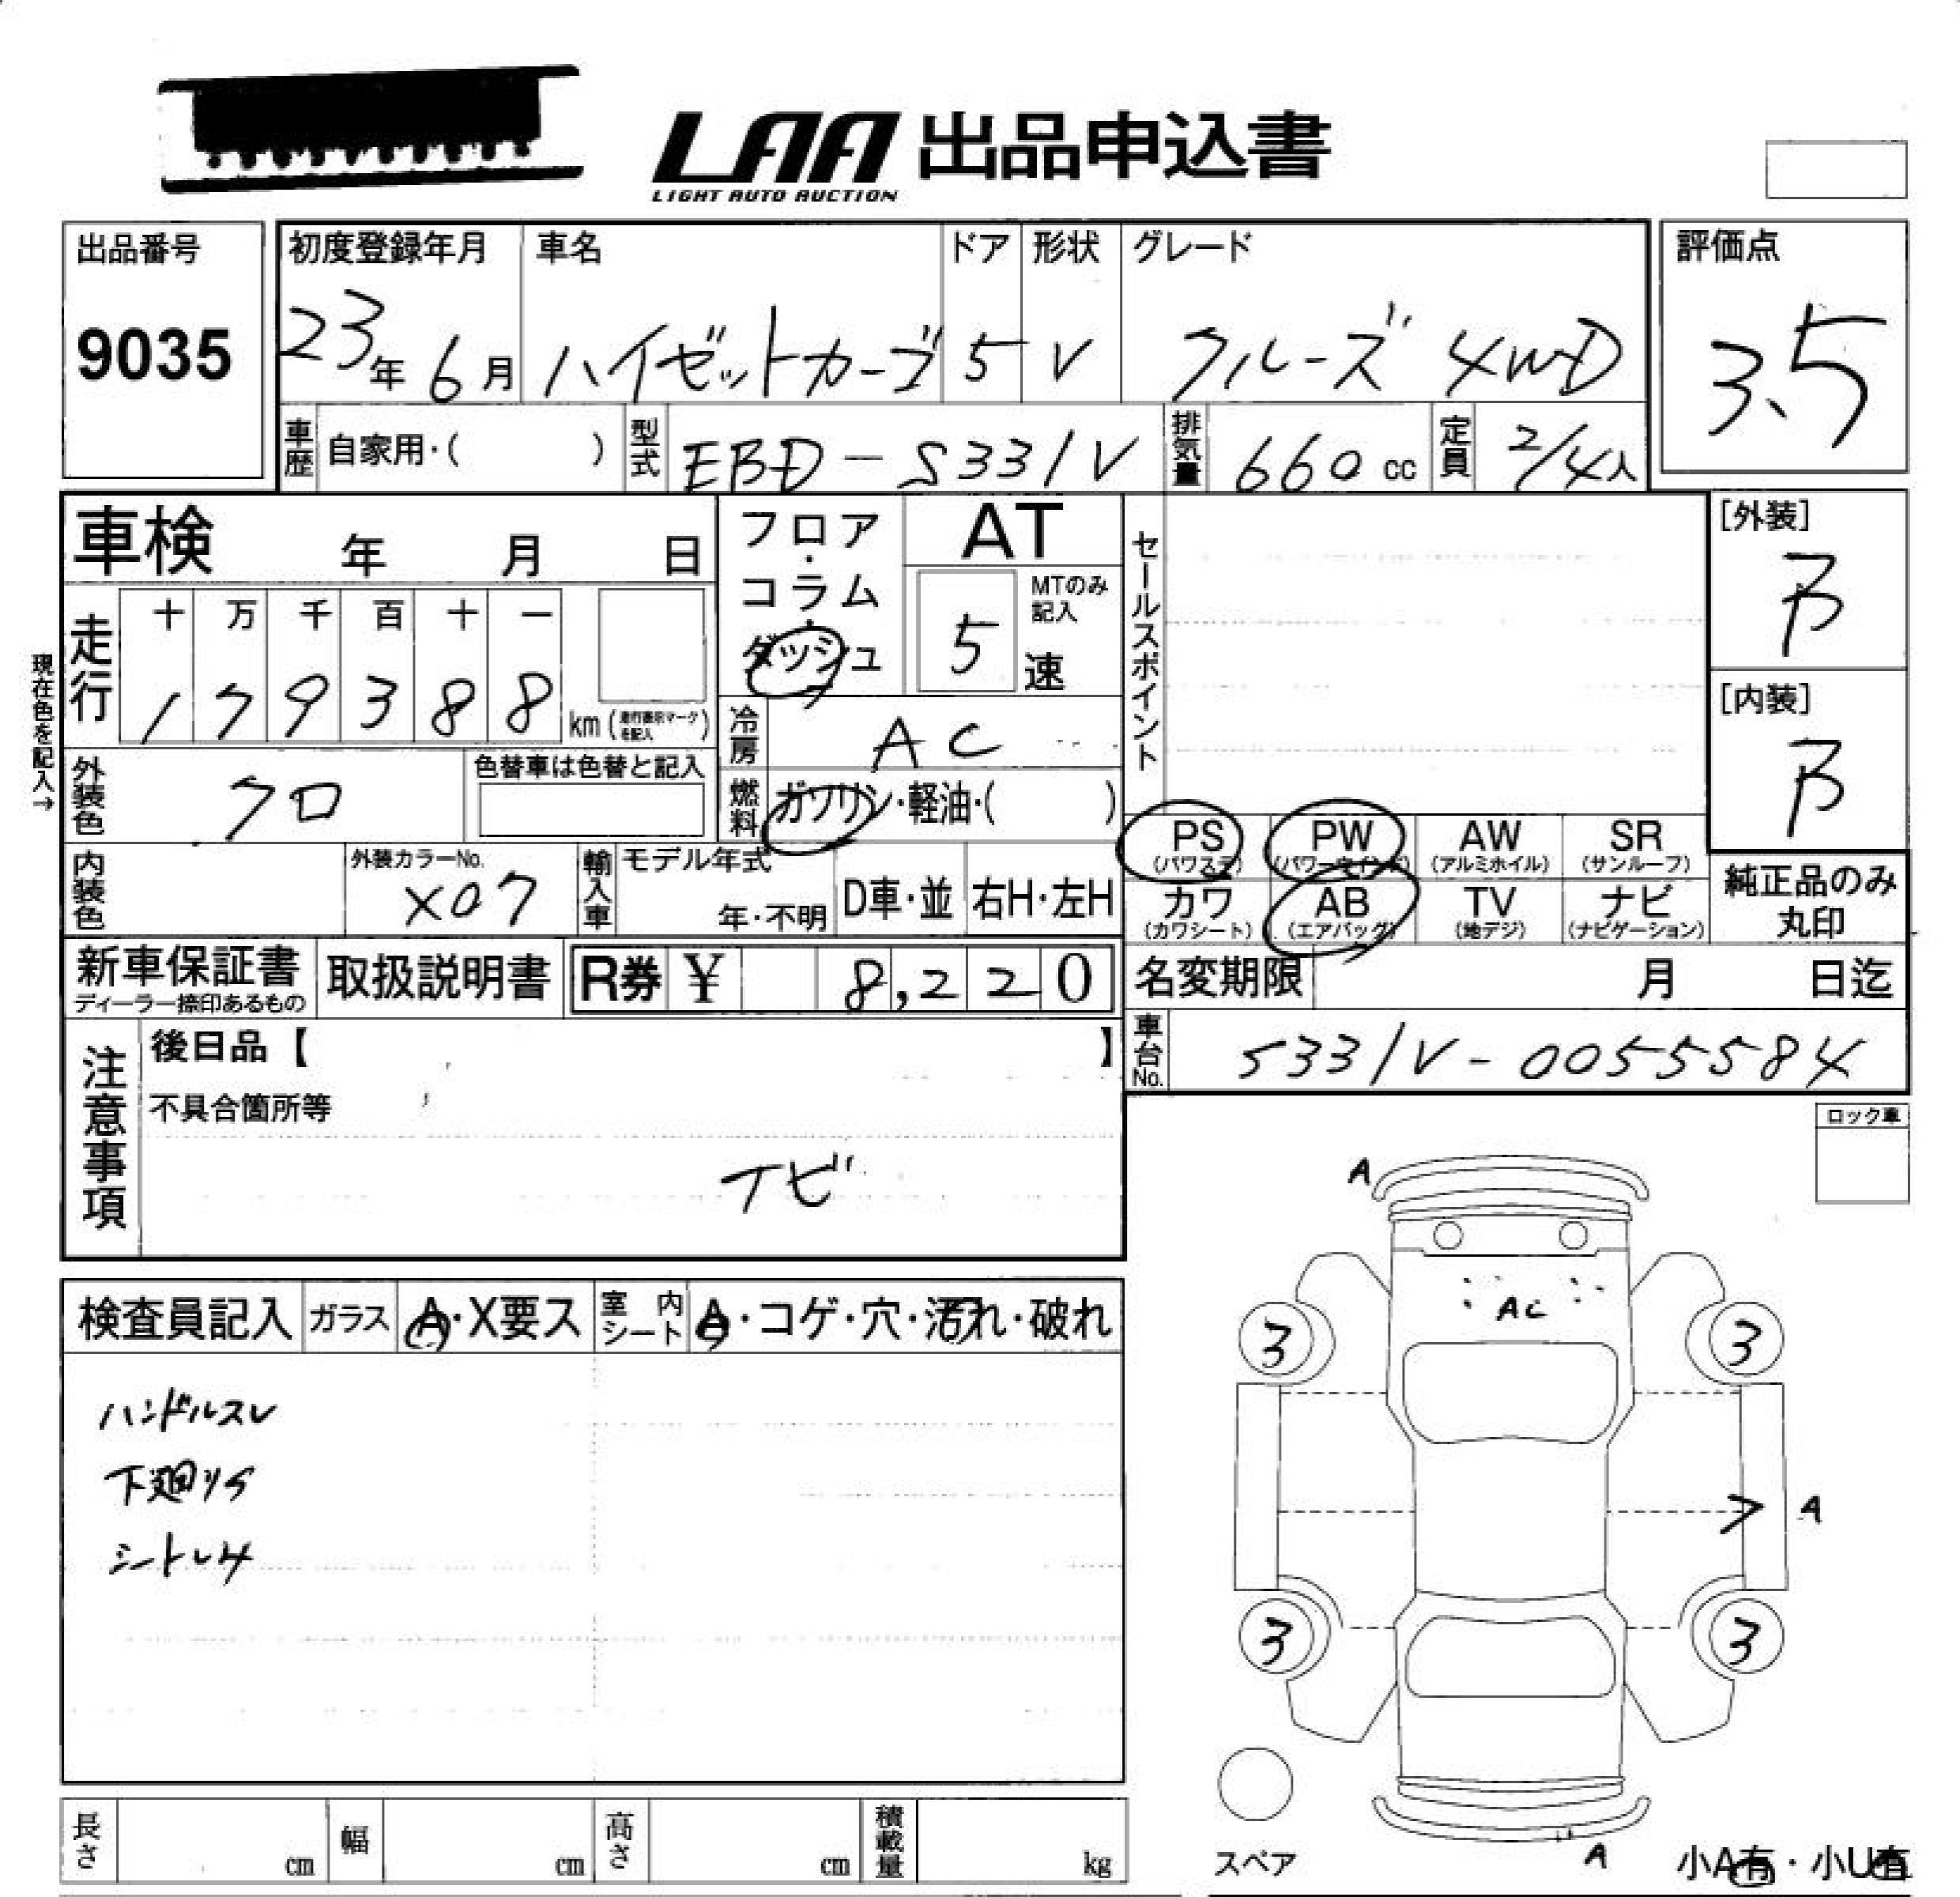 LAA 出品申込書
LIGHT AUTO AUCTION
出品番号
9035
初度登録年月
23年6月
車名
ハイゼットカーゴ
ドア
5
形状
V
グレード
クルーズ 4WD
評価点
3.5
車歴 自家用・( )
型式 EBD-S331V
排気量 660cc
定員 2/4人
車検 年 月 日
フロア・コラム・ダッシュ
AT
MTのみ記入
5速
セールスポイント
[外装]
B
[内装]
B
現在色を記入→
走行
十 万 千 百 十 一
1 7 9 3 8 8 km (走行表示マークを記入)
冷房 AC
外装色 クロ
色替車は色替と記入
燃料 ガソリン・軽油・( )
PS (パワステ)
PW (パワーウインド)
AW (アルミホイル)
SR (サンルーフ)
内装色
外装カラーNo.
X07
輸入車
モデル年式
年・不明
D車・並
右H・左H
カワ (カワシート)
AB (エアバッグ)
TV (地デジ)
ナビ (ナビゲーション)
純正品のみ
丸印
新車保証書
ディーラー捺印あるもの
取扱説明書
R券 ¥ 8,220
名変期限 月 日迄
車台No. S331V-0055584
注意事項
後日品【 】
不具合箇所等
ロック車
検査員記入
ガラス A・X要ス
室内シート A・コゲ・穴・汚れ・破れ
ハンドルスレ
下廻りS
A
AC
3 3
A
3 3
A
スペア
小A有・小U有
長さ cm
幅 cm
高さ cm
積載量 kg